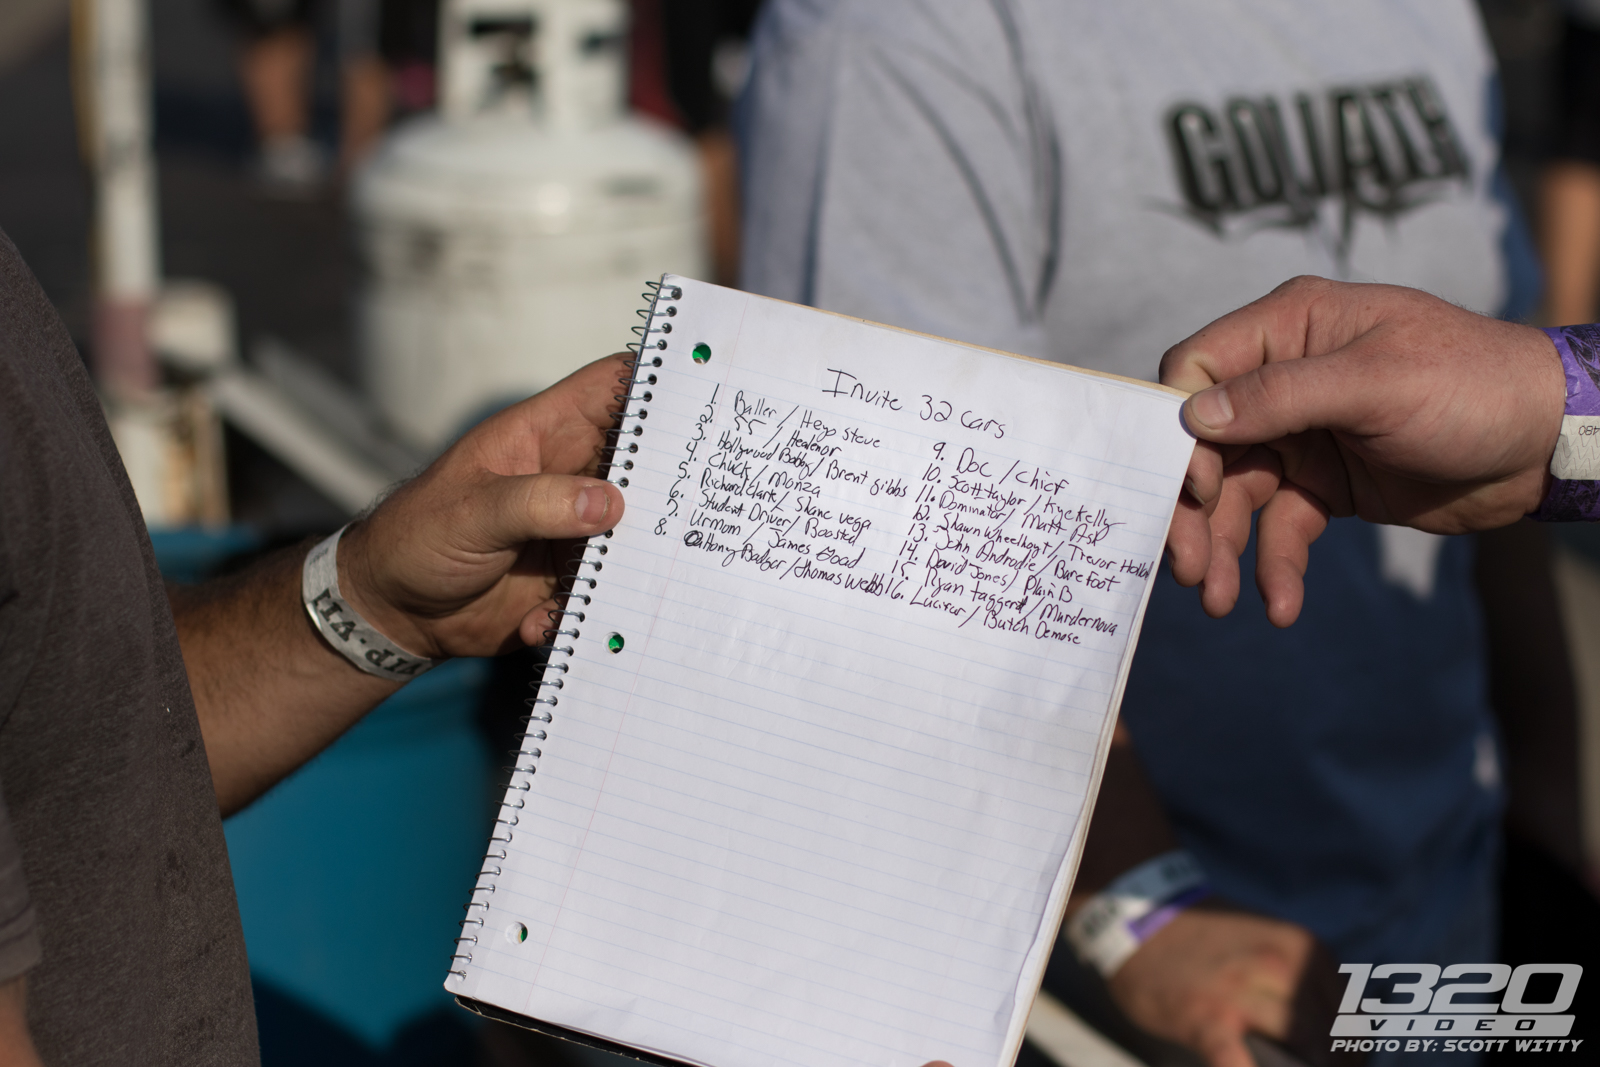 GOLIATH
Invite 32 cars
1. Baller / Hego Steve
2. 55 / Heavenor
3. Hollywood Bobby / Brent Gibbs
4. Chuck / Monza
5. Richard Clark / Shane Vega
6. Student Driver / Boosted
7. UrMom / James Good
8. Anthony Badger / Thomas Webb
9. DOC / Chief
10. Scott taylor / Kye Kelly
11. Dominator / Matt
12. Shawn Wheelhoyt / Trevor
13. John Androdie / Bare Foot
14. David Jones / Plain B
15. Ryan taggert / Murdernova
16. Lucifer / Butch Demose
VIP
480
1320
VIDEO
PHOTO BY: SCOTT WITTY